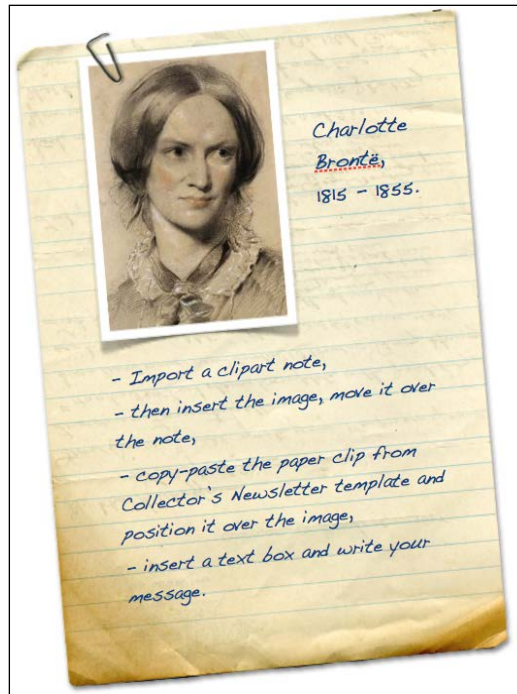 Charlotte
Brontë,
1815 - 1855.
- Import a clipart note,
- then insert the image, move it over
the note,
- copy-paste the paper clip from
Collector's Newsletter template and
position it over the image,
- insert a text box and write your
message.